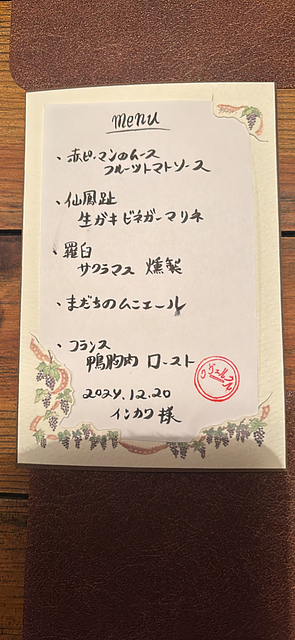 menu
・赤ピーマンのムース
フルーツトマトソース
・仙鳳趾
生ガキ ビネガーマリネ
・羅臼
サクラマス 燻製
・まだちのムニエール
・フランス
鴨胸肉 ロースト
2024.12.20
イシカワ様